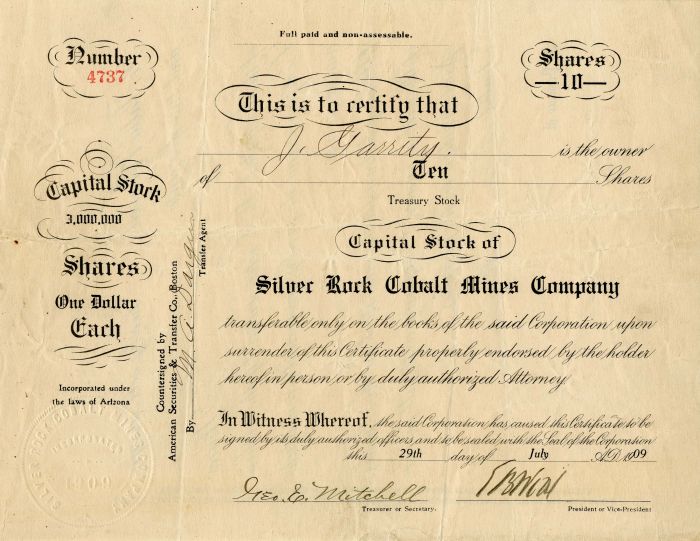 Full paid and non-assessable.
Number
4737
Shares
10
This is to certify that
J. Garrity.
is the owner
of
Ten
Shares
Treasury Stock
Capital Stock
3,000,000
Shares
One Dollar
Each
Incorporated under
the laws of Arizona
Countersigned by
American Securities & Transfer Co., Boston
By
Transfer Agent
Capital Stock of
Silver Rock Cobalt Mines Company
transferable only on the books of the said Corporation upon
surrender of this Certificate properly endorsed by the holder
hereof in person, or by duly authorized Attorney
In Witness Whereof, the said Corporation has caused this Certificate to be
signed by its duly authorized officers and to be sealed with the Seal of the Corporation
this 29th day of July A.D. 1909
Geo. E. Mitchell
Treasurer or Secretary.
President or Vice-President
SILVER ROCK COBALT MINES COMPANY
1909